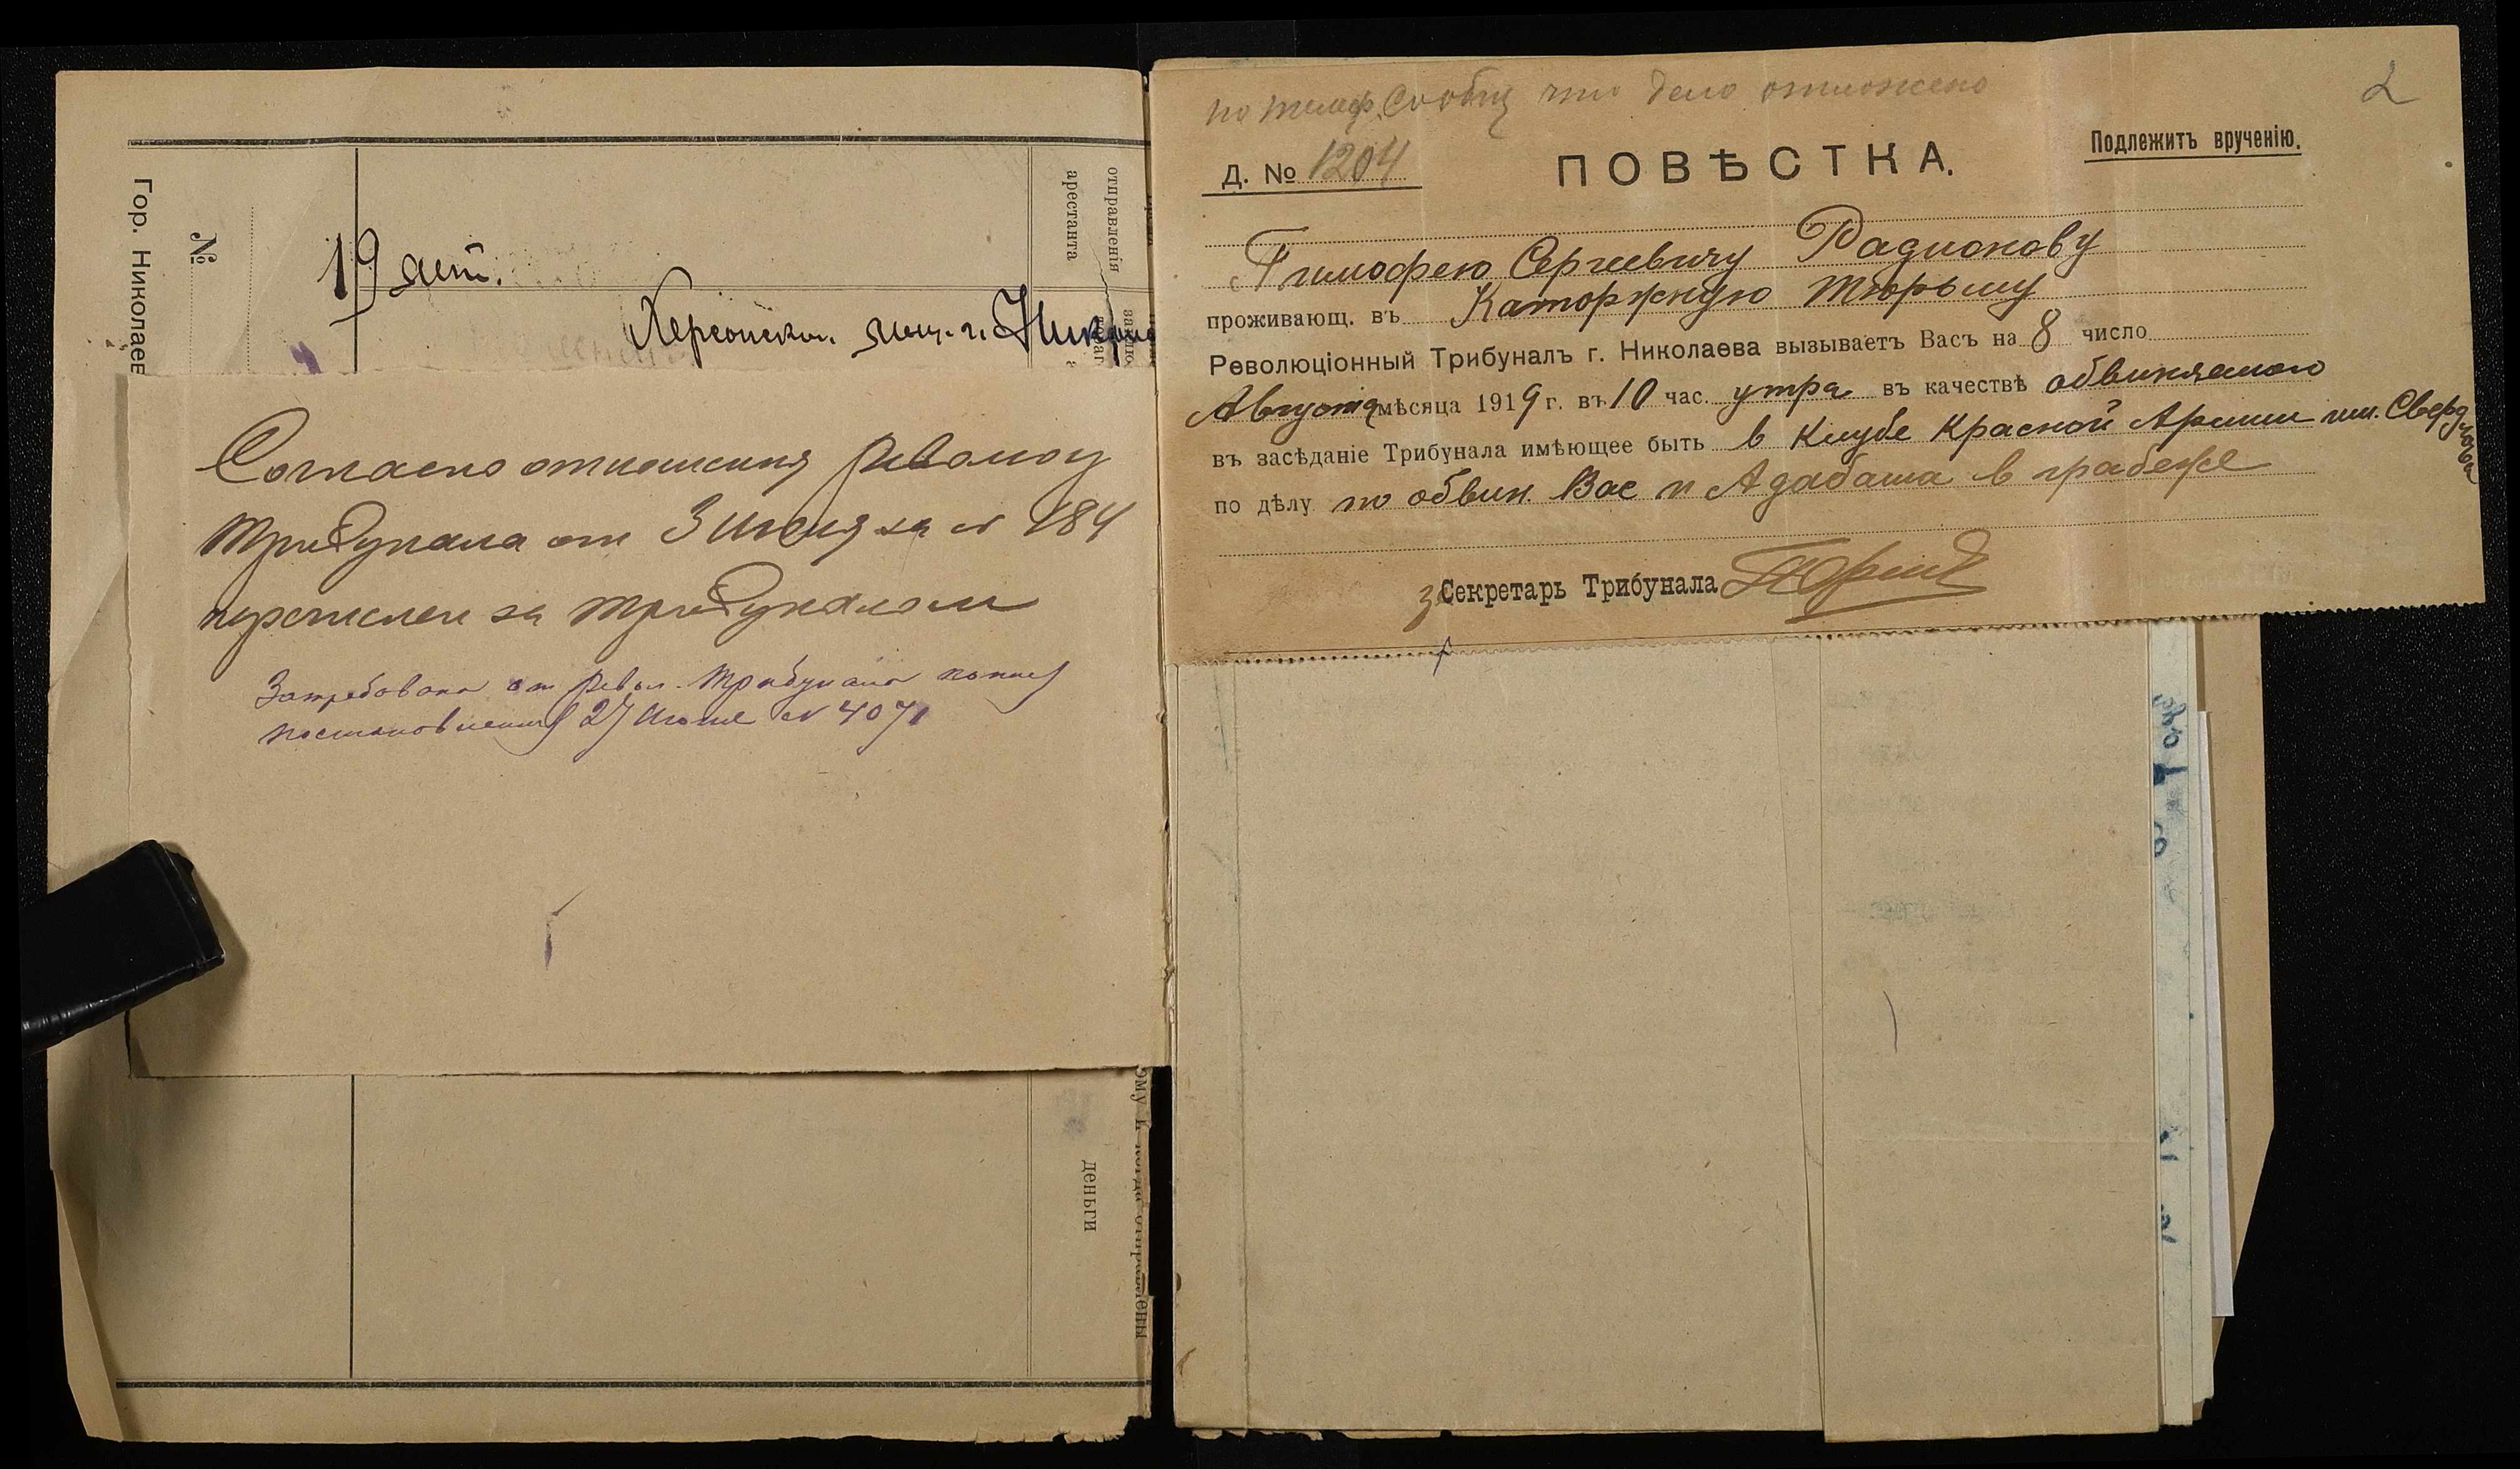 Гор. Николаев
№
19 лет.
отправленія
арестанта
Херсонск.
Согласно отношения револю
трибунала от 3 Июня за N 184
перечислен за трибуналом
Затребована отРевол. Трибунала копия
постановления 27 Июня N 4071
деньги
по телеф. сообщ что дело отложено
2
Д. № 1204
ПОВѢСТКА.
Подлежитъ врученію.
Тимофею Сергеевичу Радионову
проживающ. въ Каторжную тюрьму
Революціонный Трибуналъ г. Николаева вызываетъ Васъ на 8 число
Августа мѣсяца 1919 г. въ 10 час. утра въ качествѣ обвиняемого
въ засѣданіе Трибунала имѣющее быть в Клубе Красной Армии им. Свердлова
по дѣлу по обвин. Вас и Адабаша в грабеже
за Секретарь Трибунала